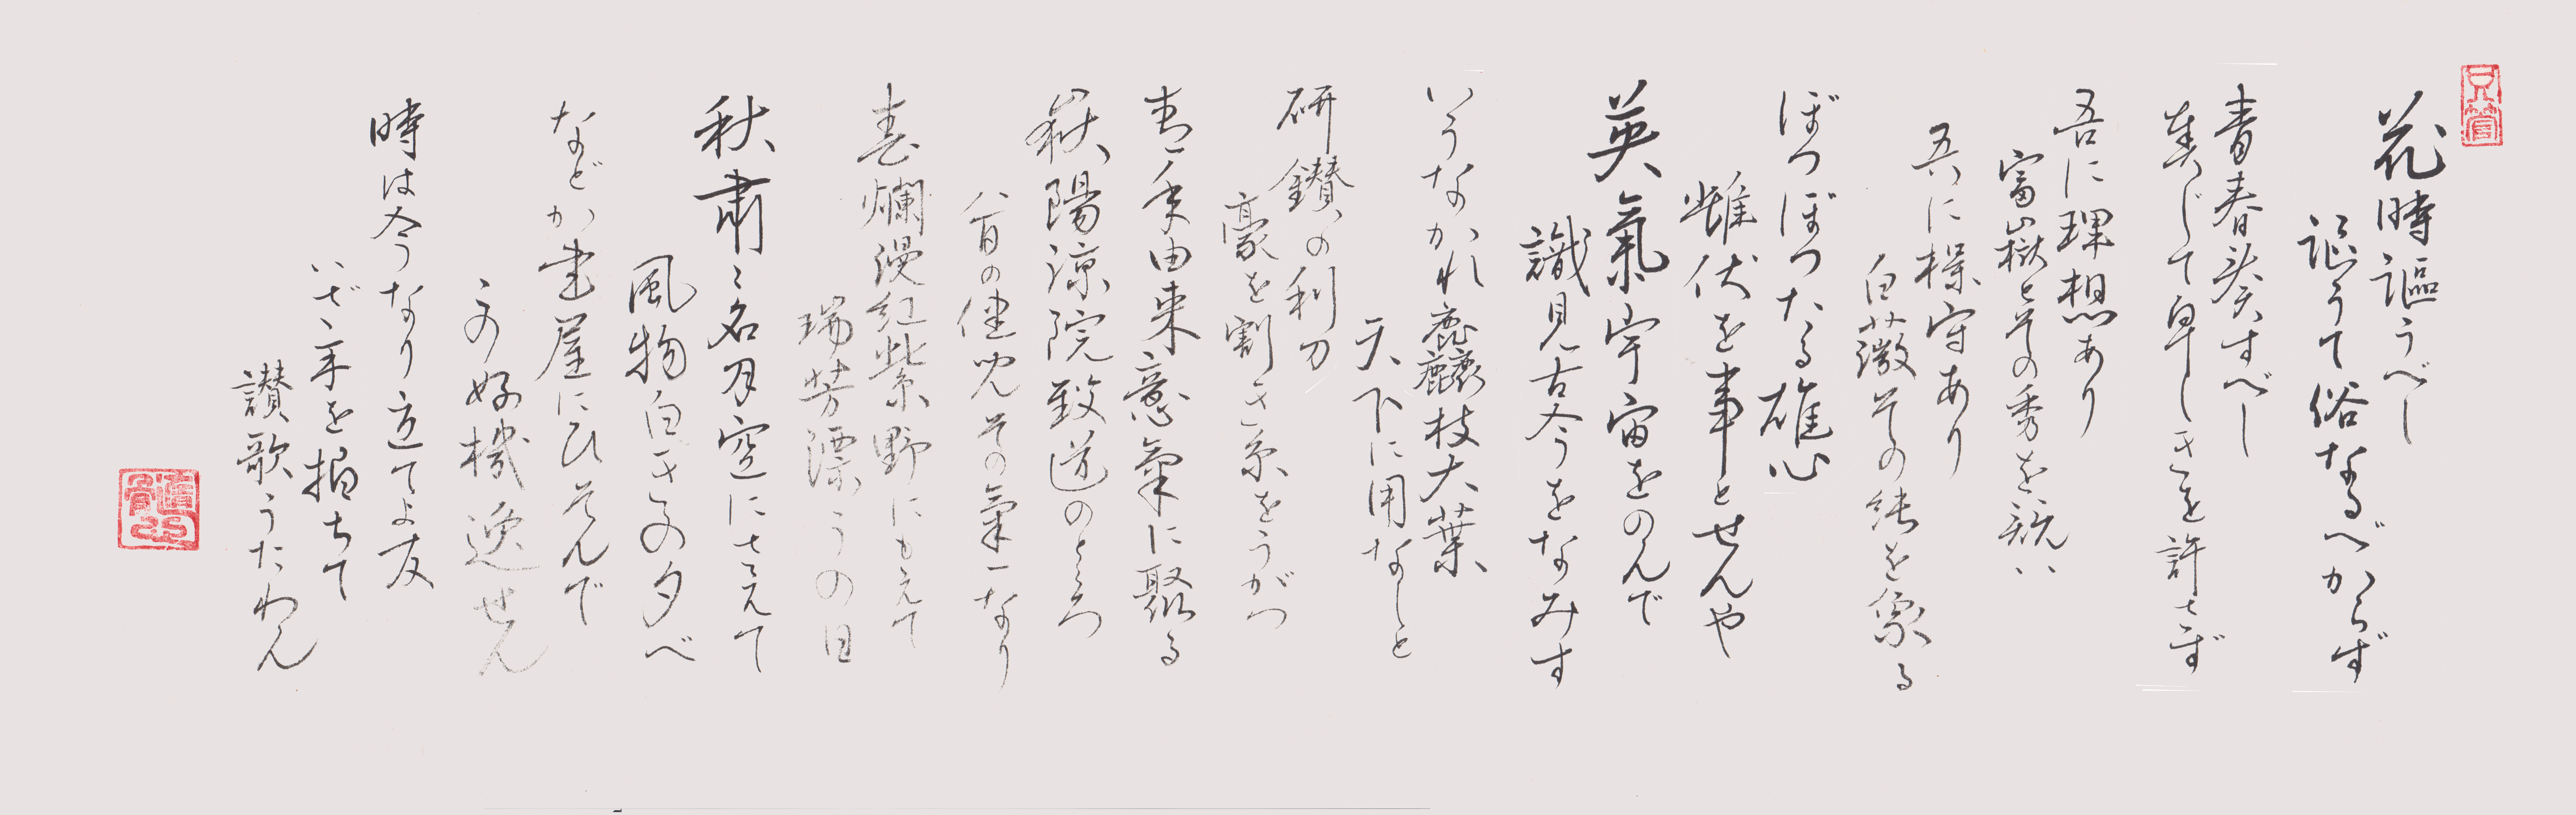 花時謳うべし
謳うて俗なるべからず
青春炎すべし
奏じて卑しきを許さず
吾に理想あり
富嶽とその秀を競い
吾に操守あり
白薇その純を象る
ぼつぼつたる雄心
雌伏を事とせんや
英氣宇宙をのんで
識見古今をなみす
いうなかれ麁枝大葉
天下に用なしと
研鑚の利刀
豪を割き糸をうがつ
青年由来意氣に聚る
嶽陽涼院致道のところ
八百の健児その氣一なり
春爛漫紅紫野にもえて
瑞芳漂うの日
秋肅々名月空にさえて
風物白きの夕べ
などか書屋にひそんで
この好機逸せん
時は今なり立てよ友
いざ手を拍ちて
讃歌うたわん